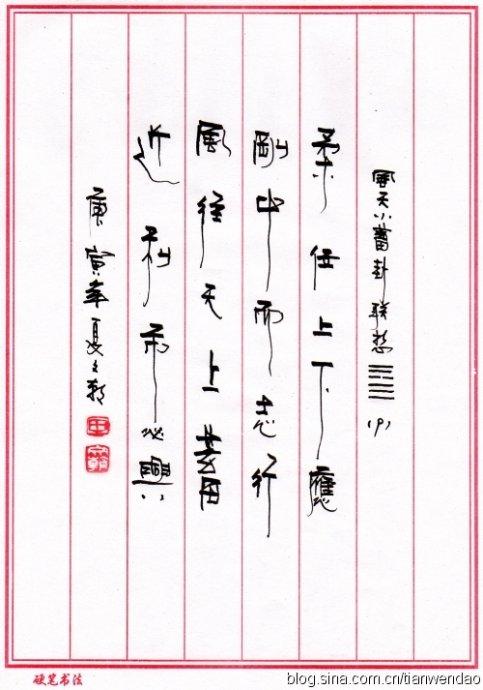 風天小蓄卦联想 (9)
柔位上下應
剛中而志行
風径天上蓄
近利不必興
庚寅年夏之朝
硬笔书法
blog.sina.com.cn/tianwendao